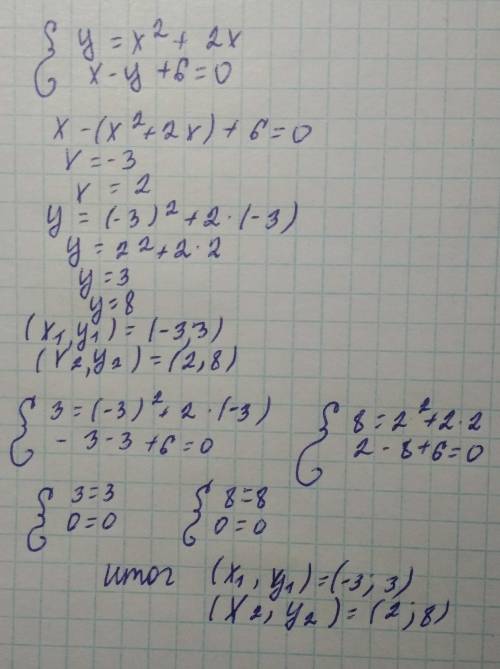 { y = x² + 2x
x - y + 6 = 0
x - (x² + 2x) + 6 = 0
x = -3
x = 2
y = (-3)² + 2 · (-3)
y = 2² + 2 · 2
y = 3
y = 8
(x₁, y₁) = (-3, 3)
(x₂, y₂) = (2, 8)
{ 3 = (-3)² + 2 · (-3)
- 3 - 3 + 6 = 0
{ 8 = 2² + 2 · 2
2 - 8 + 6 = 0
{ 3 = 3
0 = 0
{ 8 = 8
0 = 0
итог (x₁, y₁) = (-3; 3)
(x₂, y₂) = (2; 8)